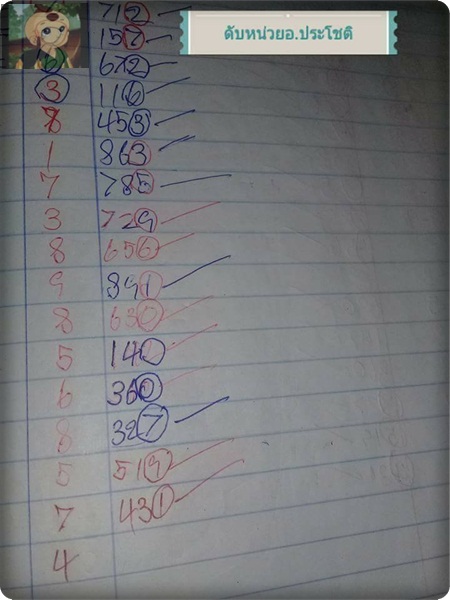 ดับหน่วยอ.ประโชติ
712
157
672
3 116
8 453
1 863
7 785
3 729
8 656
9 891
8 630
5 140
6 360
8 327
5 519
7 431
4